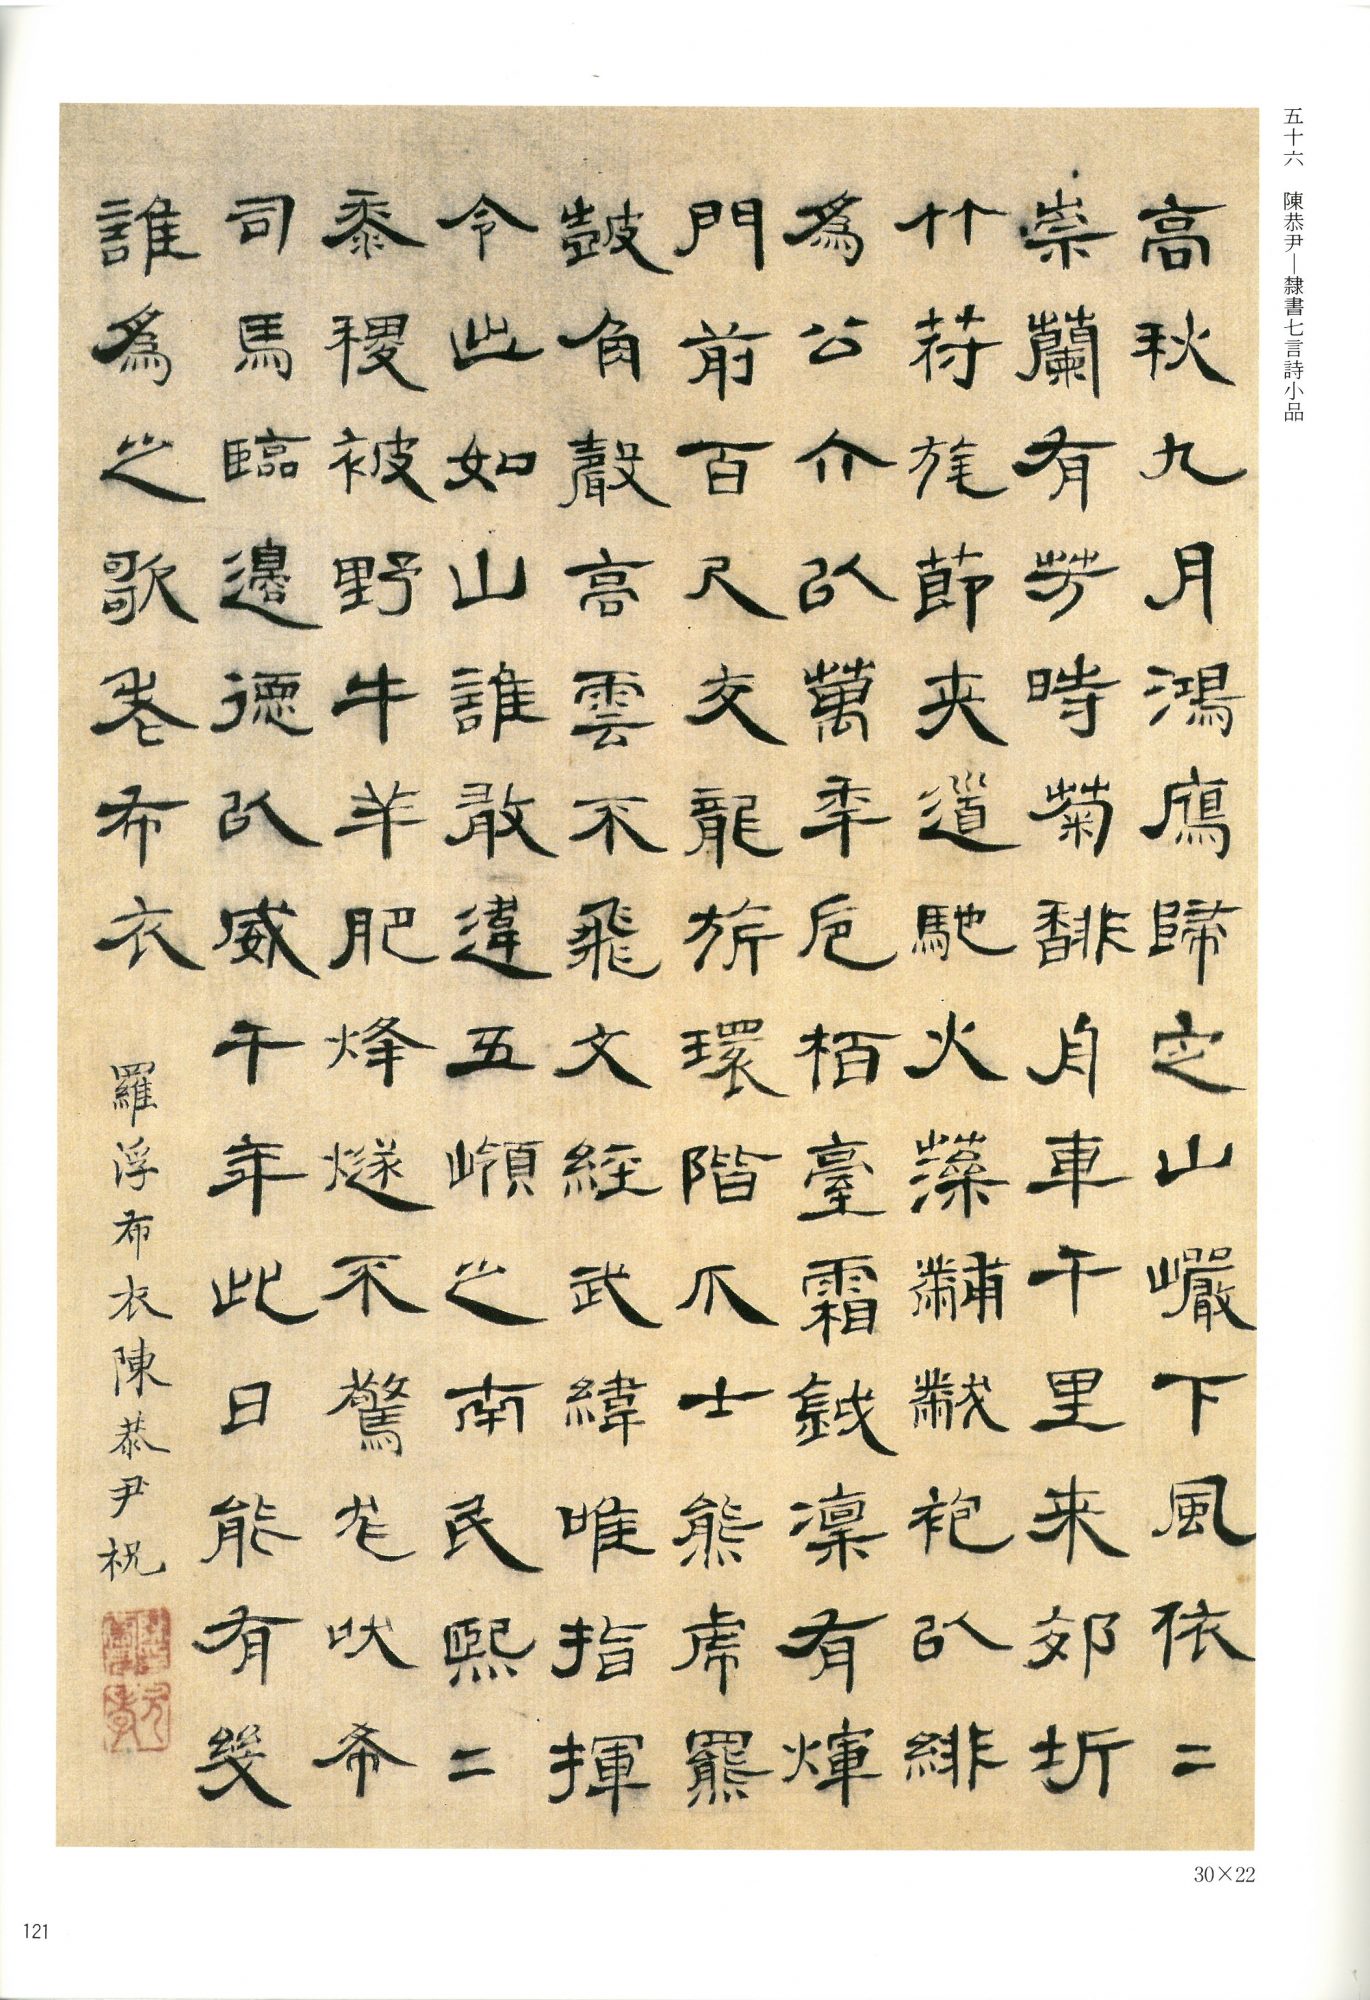 五十六 陳恭尹—隸書七言詩小品
高秋九月鴻鴈歸㝎山巖下風依二
崇蘭有芳時菊馡舟車千里来郊圻
竹符旄節夾道馳火藻黼黻袍以緋
為公介以萬年卮栢臺霜鉞凜有煇
門前百尺交龍旂環階爪士熊虎羆
鼓角聲高雲不飛文經武緯唯指揮
令此如山誰敢違五嶺之南民熙二
黍稷被野牛羊肥烽燧不驚尨吠希
司馬臨邊德以威千年此日能有幾
誰為之歌老布衣
羅浮布衣陳恭尹祝
30×22
121